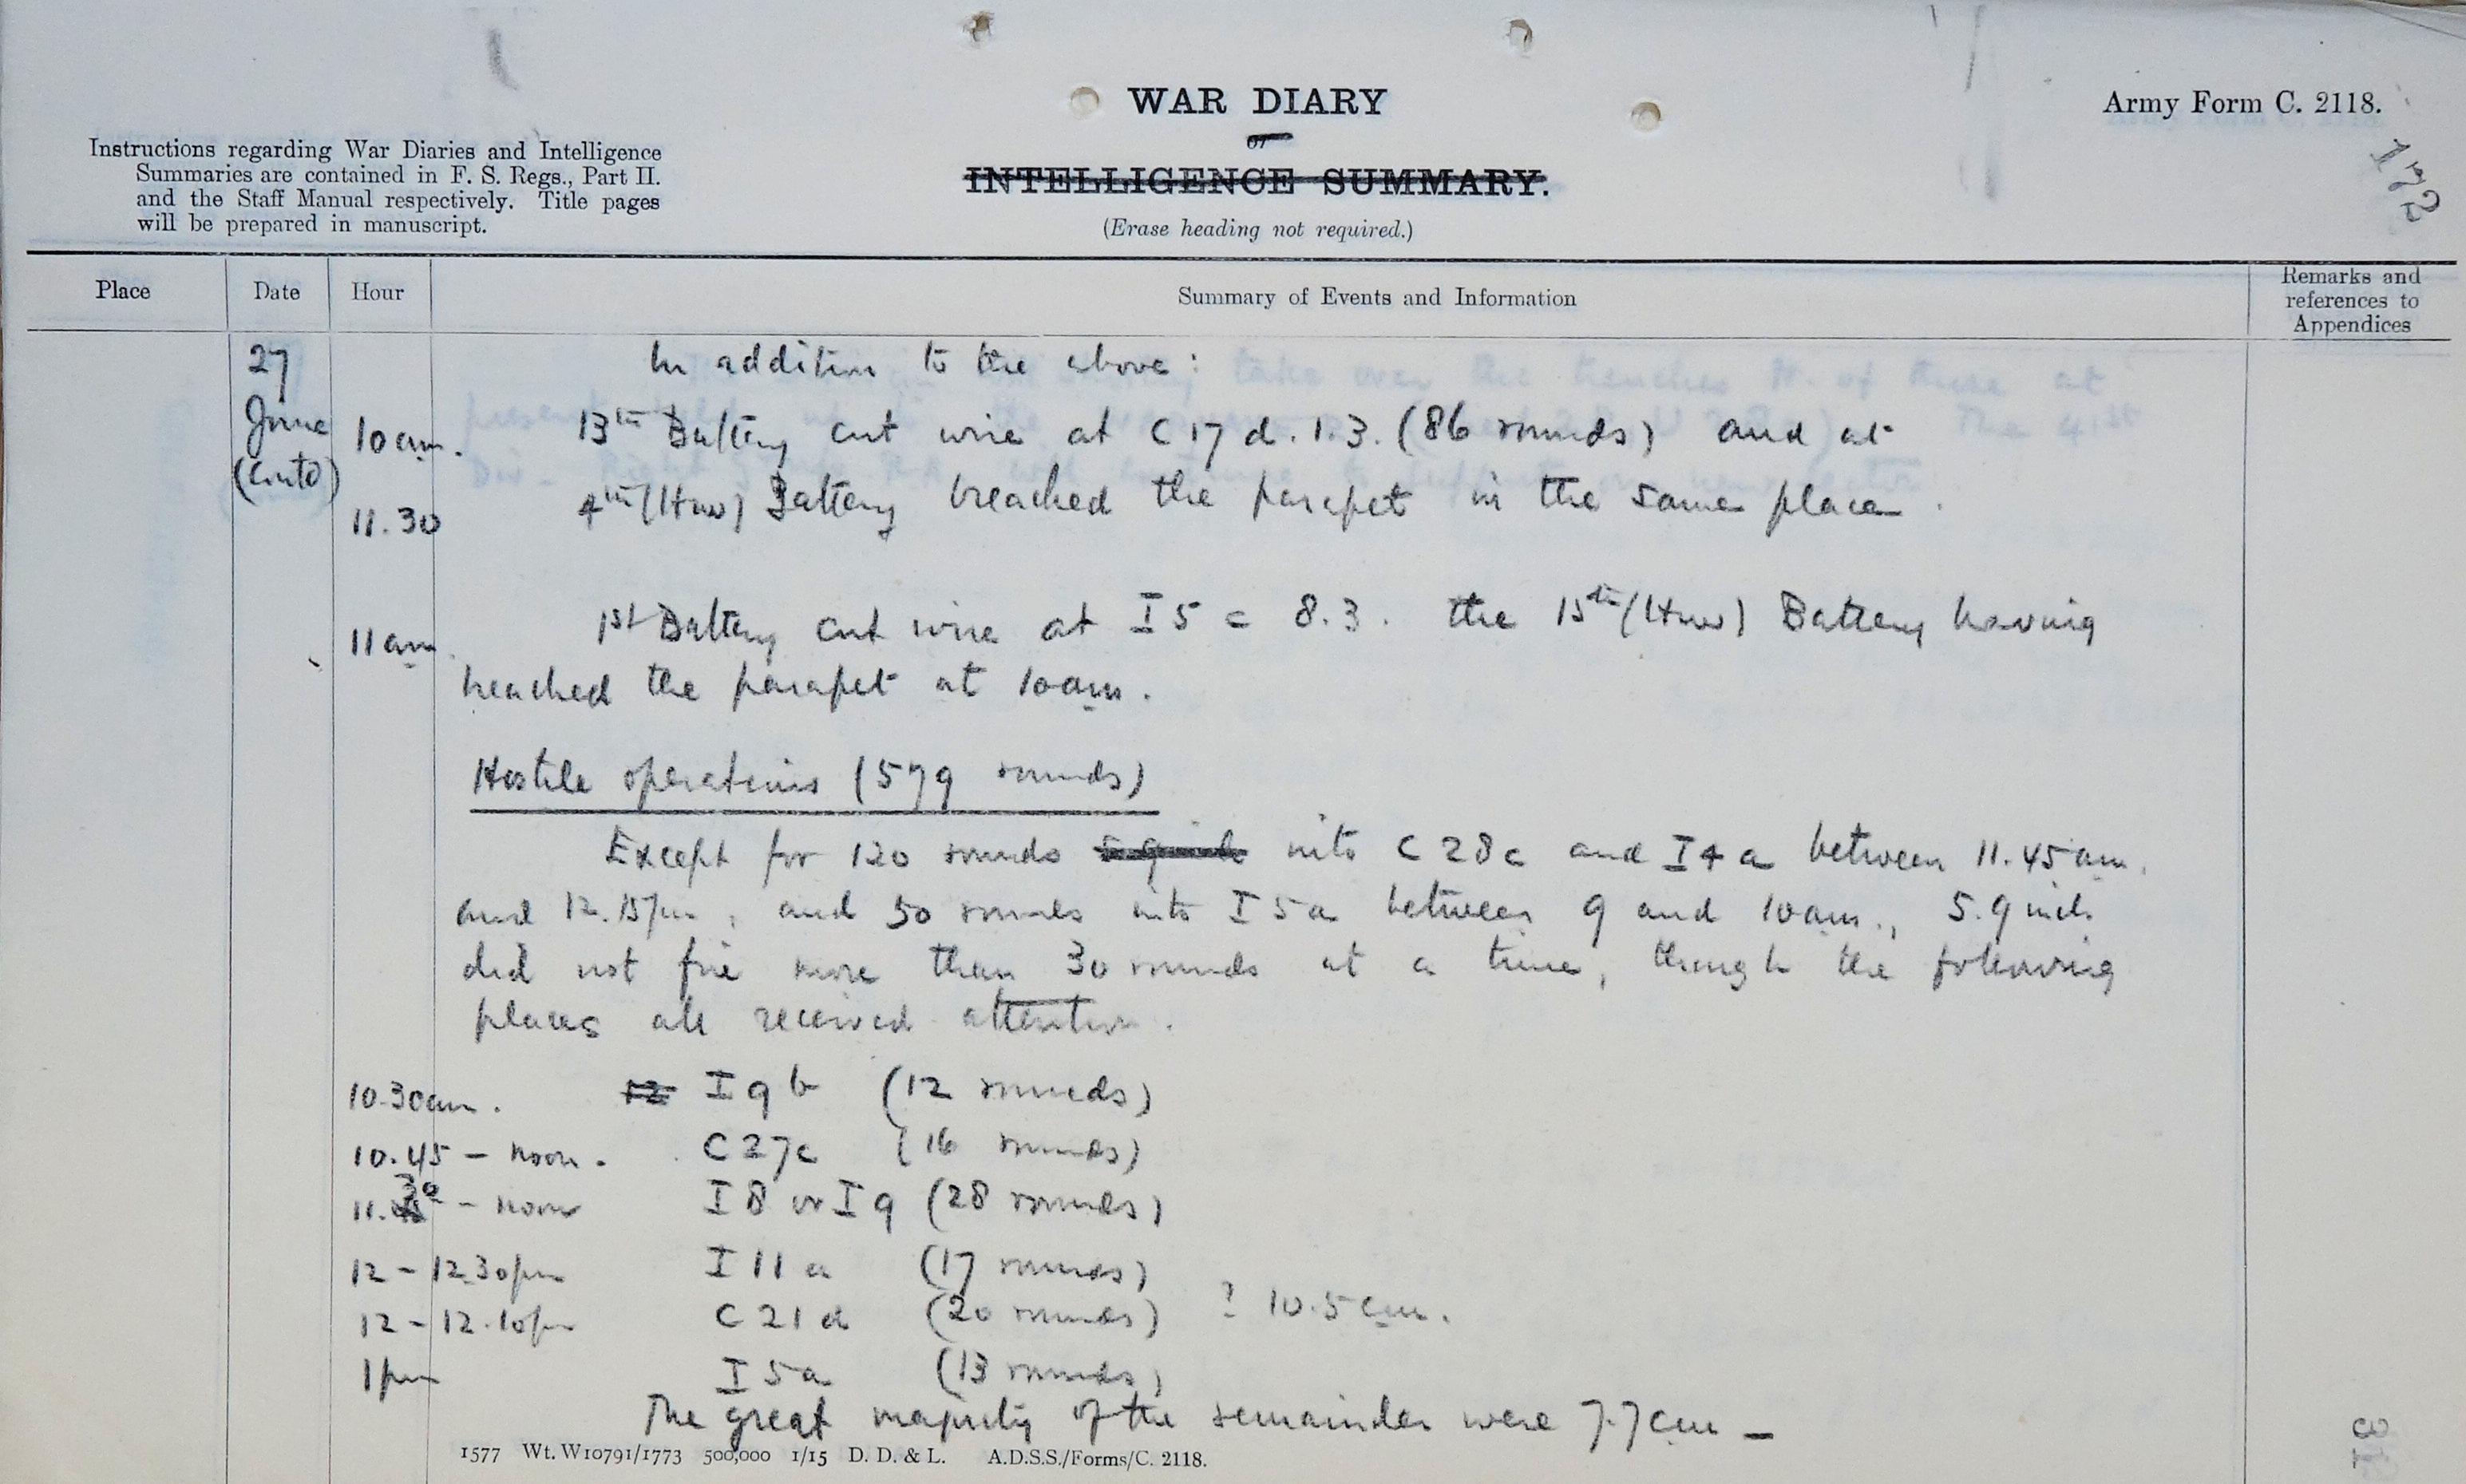 WAR DIARY
or
INTELLIGENCE SUMMARY.
(Erase heading not required.)
Army Form C. 2118.
172
Instructions regarding War Diaries and Intelligence
Summaries are contained in F. S. Regs., Part II.
and the Staff Manual respectively. Title pages
will be prepared in manuscript.
Place Date Hour Summary of Events and Information Remarks and references to Appendices
27 In addition to the above:
June 10 am. 13th Battery cut wire at C 17 d. 1.3. (86 rounds) and at
(contd) 11.30 4th (How) Battery breached the parapet in the same place.
11 am. 1st Battery cut wire at I 5 c 8.3. the 15th (How) Battery having
breached the parapet at 10 am.
Hostile operations (579 rounds)
Except for 120 rounds 5.9 inch into C 28 c and I 4 a between 11.45 am.
and 12.15 pm, and 50 rounds into I 5 a between 9 and 10 am., 5.9 inch
did not fire more than 30 rounds at a time, though the following
places all received attention.
10.30 am. 12 I 9 b (12 rounds)
10.45 - noon. C 27 c (16 rounds)
11.30 - noon I 8 or I 9 (28 rounds)
12 - 12.30 pm I 11 a (17 rounds)
12 - 12.10 pm C 21 d (20 rounds) ? 10.5 cm.
1 pm I 5 a (13 rounds)
The great majority of the remainder were 7.7 cm -
1577 Wt. W10791/1773 500,000 1/15 D. D. & L. A.D.S.S./Forms/C. 2118.